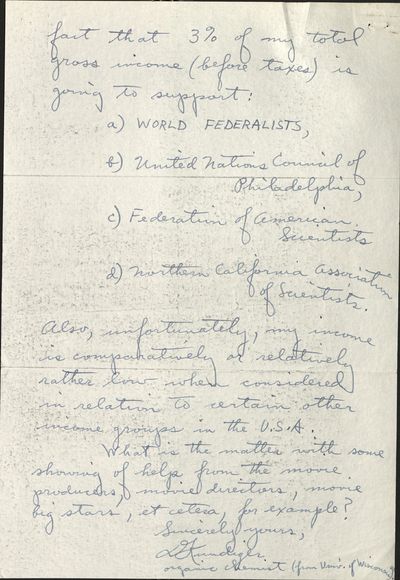 fact that 3% of my total
gross income (before taxes) is
going to support:
a) WORLD FEDERALISTS,
b) United Nations Council of
Philadelphia,
c) Federation of American
Scientists
d) Northern California Association
of Scientists.
Also, unfortunately, my income
is comparatively or relatively
rather low when considered
in relation to certain other
income groups in the U.S.A.
What is the matter with some
showing of help from the movie
producers, movie directors, movie
big stars, et cetera, for example?
Sincerely yours,
organic chemist (from Univ. of Wisconsin)